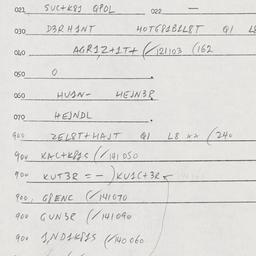 021 SUC+K81 GPOL 022 —
030 D3RH1NT HOT681B1L8T Q1 L8
040 AGR1Z+1T+ (/121103 (162
050 0 .
060 HU1N- HEJN3R
070 HEJNDL .
900 ZEL8T+HAJT Q1 L8 ** (240
900 KAC+K81S (/141050
900 KUT3R = - )KU1C+3R
900 GPENC (/141070
900 GUN3R (/141090
900 1,ND1K81S (/140060